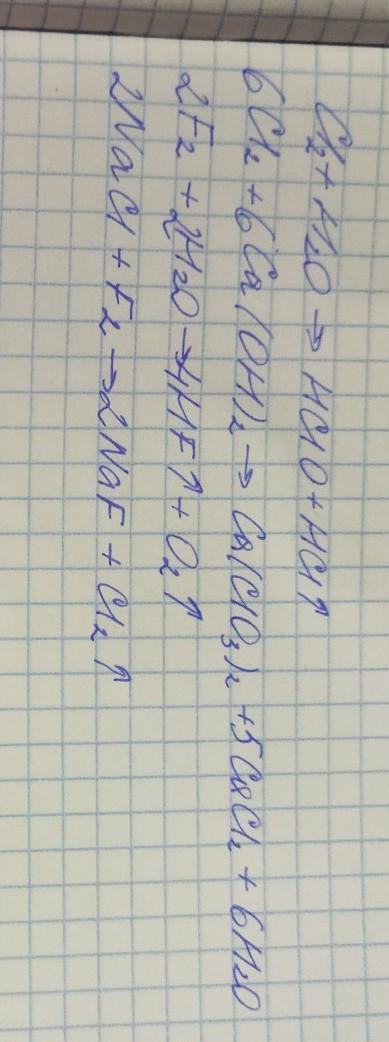 Cl₂ + H₂O → HClO + HCl↑
6Cl₂ + 6Ca(OH)₂ → Ca(ClO₃)₂ + 5CaCl₂ + 6H₂O
2F₂ + 2H₂O → 4HF↑ + O₂↑
2NaCl + F₂ → 2NaF + Cl₂↑